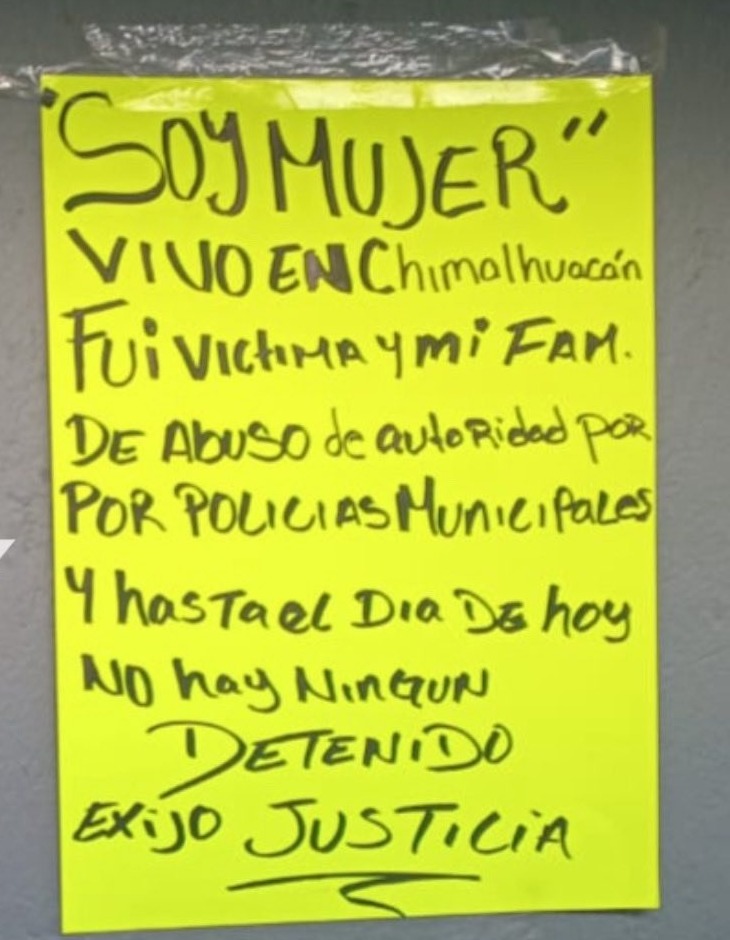 "SOY MUJER"
VIVO EN Chimalhuacán
Fui VICtiMA Y mi FAM.
DE AbUSO de autoRidad POR
POR POLICIAS MUNICIPALes
Y hasTa el Dia DE hoy
NO hay NINGUN
DETENIDO
EXiJO JUSTICiA